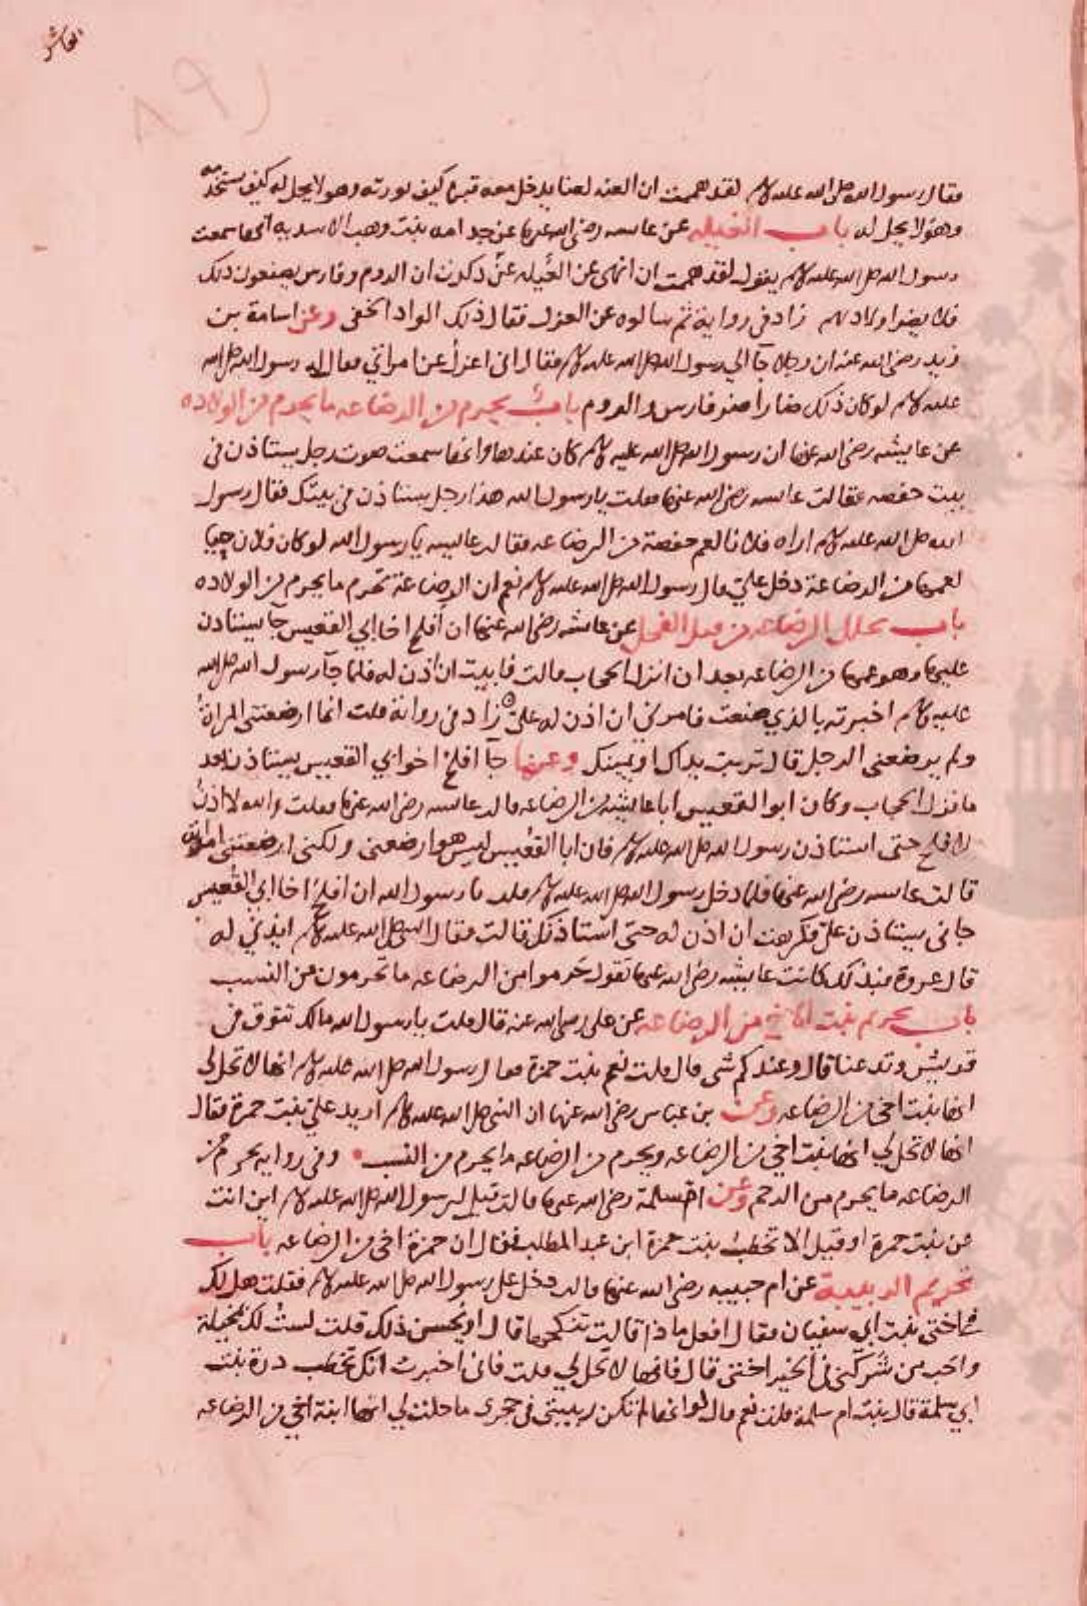 عاشر
٨٩١
فقال رسول الله صلى الله عليه وسلم لقد هممت ان العنه لعنا يدخل معه قبره كيف يورثه وهو لا يحل له كيف يستخدمه
وهو لا يحل له باب الغيله عن عائشه رضي الله عنها عن جدامه بنت وهب الاسديه انها سمعت
رسول الله صلى الله عليه وسلم يقول لقد هممت ان انهى عن الغيله حتى ذكرت ان الروم وفارس يصنعون ذلك
فلا يضر اولادهم زاد في رواية ثم سالوه عن العزل فقال ذلك الواد الخفي وعن اسامة بن
زيد رضي الله عنه ان رجلا جآ الي رسول الله صلى الله عليه وسلم فقال اني اعزل عن امراتي فقال له رسول الله صلى الله
عليه وسلم لو كان ذلك ضارا ضر فارس والروم باب يحرم من الرضاعه ما يحرم من الولاده
عن عايشه رضي الله عنها ان رسول الله صلى الله عليه وسلم كان عندها وانها سمعت صوت رجل يستاذن في
بيت حفصه فقالت عائشه رضي الله عنها فقلت يا رسول الله هذا رجل يستاذن في بيتك فقال رسول
الله صلى الله عليه وسلم اراه فلانا لعم حفصة من الرضاعه فقالت عايشه يا رسول الله لو كان فلان حيا
لعمها من الرضاعة دخل علي قال رسول الله صلى الله عليه وسلم نعم ان الرضاعة تحرم ما يحرم من الولاده
باب تحلل الرضاعه من قبل الفحل عن عائشه رضي الله عنها ان افلح اخا ابي القعيس جآ يستاذن
عليها وهو عمها من الرضاعه بعد ان انزل الحجاب قالت فابيت ان اذن له فلما جآ رسول الله صلى الله
عليه وسلم اخبرته بالذي صنعت فامرني ان اذن له علي زاد في رواية قلت انما ارضعتني المراة
ولم يرضعني الرجل قال تربت يداك او يمينك وعنها جآ افلح اخو ابي القعيس يستاذن بعد
ما نزل الحجاب وكان ابو القعيس ابا عايشه من الرضاعه قالت عائشه رضي الله عنها فقلت والله لا اذن
لافلح حتى استاذن رسول الله صلى الله عليه وسلم فان ابا القعيس ليس هو ارضعني ولكني ارضعتني امراته
قالت عائشه رضي الله عنها فلما دخل رسول الله صلى الله عليه وسلم قلت يا رسول الله ان افلح اخا ابي القعيس
جاني يستاذن علي فكرهت ان اذن له حتى استاذنك قالت فقال النبي صلى الله عليه وسلم ايذني له
قال عروة فبذلك كانت عايشه رضي الله عنها تقول حرموا من الرضاعه ما تحرمون من النسب
باب تحريم بنت الاخ من الرضاعه عن علي رضي الله عنه قال قلت يا رسول الله مالك تتوق في
قريش وتدعنا قال وعندكم شي قال قلت نعم بنت حمزة فقال رسول الله صلى الله عليه وسلم انها لا تحل لي
انها بنت اخي من الرضاعه وعن بن عباس رضي الله عنهما ان النبي صلى الله عليه وسلم اريد علي بنت حمزة فقال
انها لا تحل لي انها بنت اخي من الرضاعه ويحرم من الرضاعه ما يحرم من النسب وفي روايه يحرم من
الرضاعه ما يحرم من الرحم وعن ام سلمة رضي الله عنها قالت قيل لرسول الله صلى الله عليه وسلم اين انت
عن بنت حمزة او قيل الا تخطب بنت حمزة ابن عبد المطلب فقال ان حمزة اخي من الرضاعه باب
تحريم الربيبة عن ام حبيبه رضي الله عنها قالت دخل علي رسول الله صلى الله عليه وسلم فقلت هل لك
في اختي بنت ابي سفيان فقال افعل ماذا قالت تنكحها قال او تحسن ذلك قلت لست لك بمخيلة
واحب من شركني في الخير اختي قال فانها لا تحل لي قلت فاني اخبرت انك تخطب درة بنت
ابي سلمة قال بنت ام سلمة قلت نعم قال لو انها لم تكن ربيبتي في حجري ما حلت لي انها ابنة اخي من الرضاعه